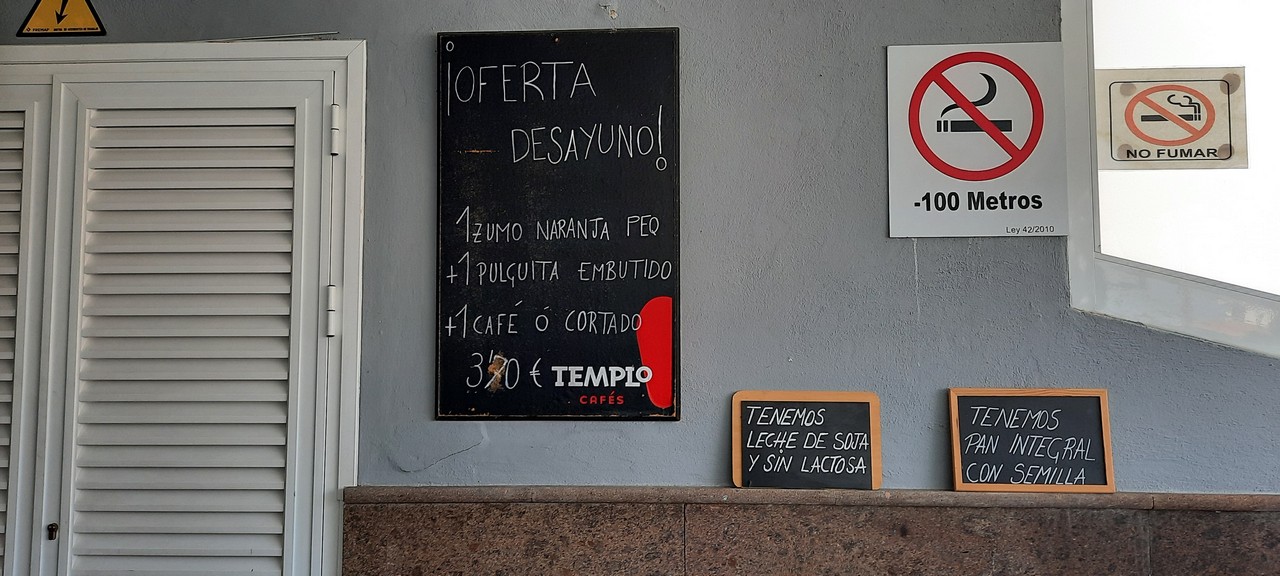 ¡OFERTA
DESAYUNO!
1 ZUMO NARANJA PEQ
+1 PULGUITA EMBUTIDO
+1 CAFÉ Ó CORTADO
€
TEMPLO
CAFÉS
-100 Metros
Ley 42/2010
NO FUMAR
TENEMOS
LECHE DE SOJA
Y SIN LACTOSA
TENEMOS
PAN INTEGRAL
CON SEMILLA